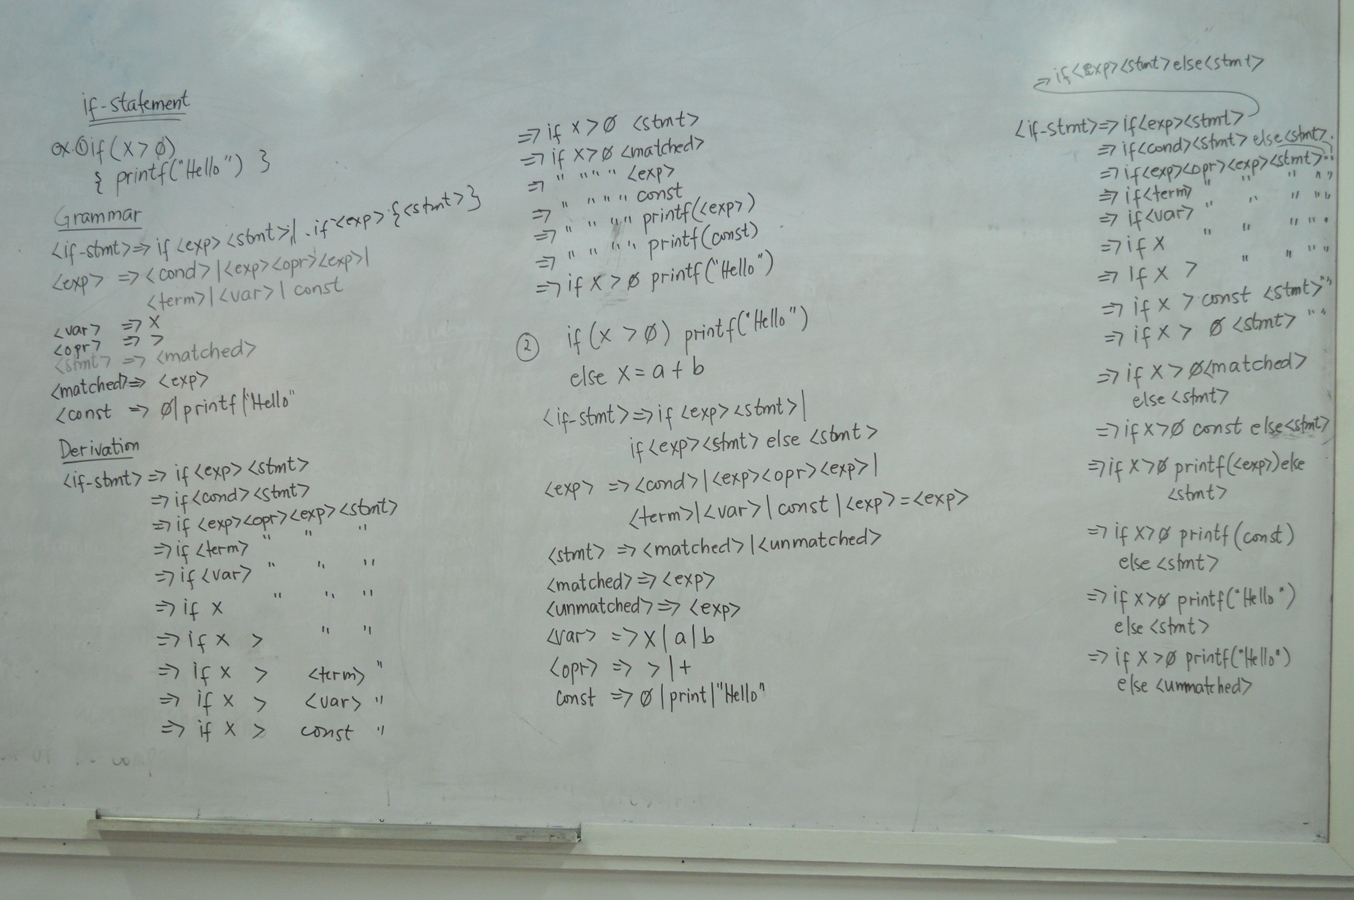 if-statement
ex. ① if (X > 0)
{ printf("Hello") }
Grammar
<if-stmt> => if <exp> <stmt> | if <exp> {<stmt>}
<exp> => <cond> | <exp><opr><exp> |
<term> | <var> | const
<var> => X
<opr> => >
<stmt> => <matched>
<matched> => <exp>
<const => 0 | printf | "Hello"
Derivation
<if-stmt> => if <exp> <stmt>
=> if <cond> <stmt>
=> if <exp><opr><exp> <stmt>
=> if <term> " " "
=> if <var> " " "
=> if X " " "
=> if X > " "
=> if X > <term> "
=> if X > <var> "
=> if X > const "
=> if X > 0 <stmt>
=> if X > 0 <matched>
=> " " " " <exp>
=> " " " " const
=> " " " " printf(<exp>)
=> " " " " printf(const)
=> if X > 0 printf("Hello")
② if (X > 0) printf("Hello")
else X = a + b
<if-stmt> => if <exp> <stmt> |
if <exp> <stmt> else <stmt>
<exp> => <cond> | <exp><opr><exp> |
<term> | <var> | const | <exp> = <exp>
<stmt> => <matched> | <unmatched>
<matched> => <exp>
<unmatched> => <exp>
<var> => X | a | b
<opr> => > | +
const => 0 | print | "Hello"
=> if <exp> <stmt> else <stmt>
<if-stmt> => if <exp> <stmt>
=> if <cond> <stmt> else <stmt>
=> if <exp><opr><exp> <stmt> " "
=> if <term> " " " " "
=> if <var> " " " " "
=> if X " " " " "
=> If X > " " " "
=> if X > const <stmt> " "
=> if X > 0 <stmt> " "
=> if X > 0 <matched>
else <stmt>
=> if X > 0 const else <stmt>
=> if X > 0 printf(<exp>) else
<stmt>
=> if X > 0 printf (const)
else <stmt>
=> if X > 0 printf("Hello")
else <stmt>
=> if X > 0 printf("Hello")
else <unmatched>